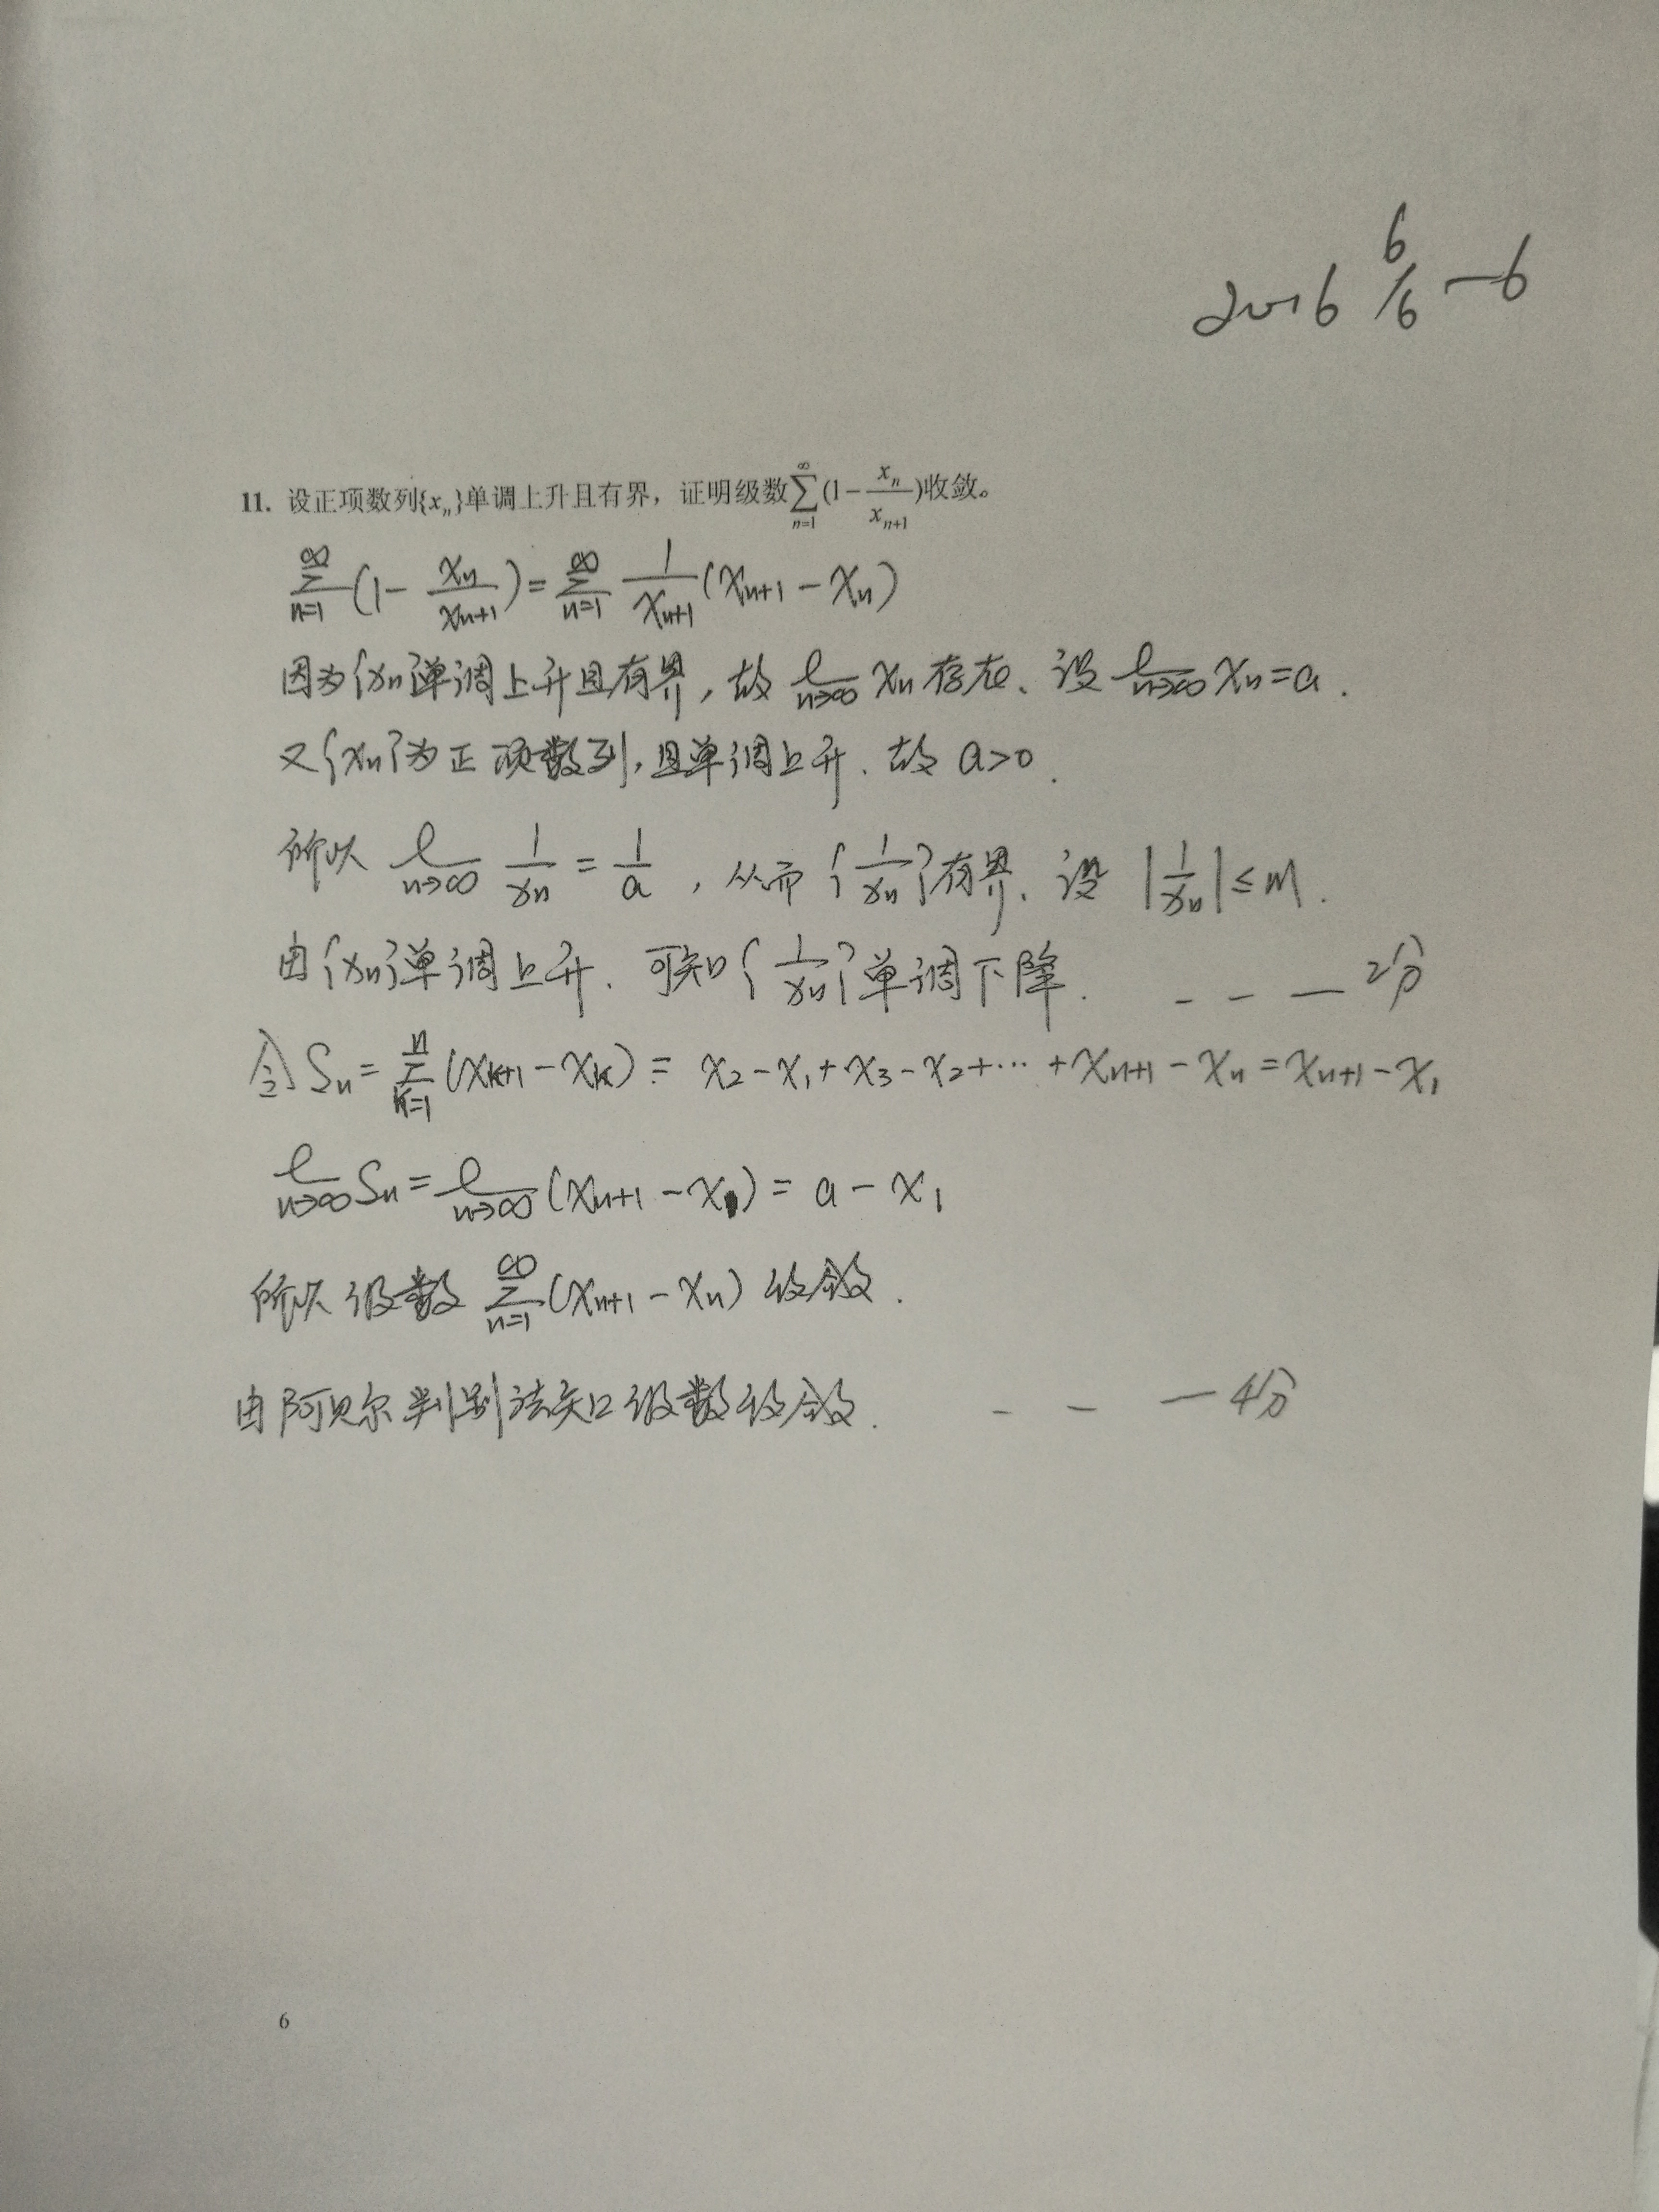 2016 6/6 -6
11. 设正项数列{xₙ}单调上升且有界，证明级数∑_{n=1}^{∞}(1-xₙ/xₙ₊₁)收敛。
∑_{n=1}^{∞}(1-xₙ/xₙ₊₁)=∑_{n=1}^{∞} 1/xₙ₊₁ (xₙ₊₁-xₙ)
因为{xₙ}单调上升且有界，故 l_{n→∞} xₙ 存在、设 l_{n→∞} xₙ=a.
又{xₙ}为正项数列，且单调上升、故 a>0.
所以 l_{n→∞} 1/xₙ = 1/a，从而{1/xₙ}有界、设 |1/xₙ|≤M.
由{xₙ}单调上升、可知{1/xₙ}单调下降. - - — 2分
令 Sₙ=∑_{k=1}^{n}(xₖ₊₁-xₖ)= x₂-x₁+x₃-x₂+⋯+xₙ₊₁-xₙ=xₙ₊₁-x₁
l_{n→∞} Sₙ= l_{n→∞}(xₙ₊₁-x₁)= a-x₁
所以级数 ∑_{n=1}^{∞}(xₙ₊₁-xₙ) 收敛.
由阿贝尔判别法知级数收敛. - - — 4分
6